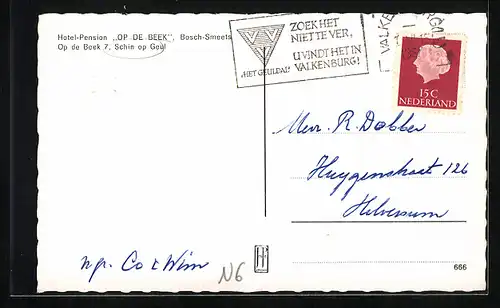 Hotel-Pension „OP DE BEEK", Bosch-Smeets
Op de Beek 7, Schin op Geul
VVV
„HET GEULDAL"
ZOEK HET
NIET TE VER,
U VINDT HET IN
VALKENBURG!
VALKENBURG
15C
NEDERLAND
Mevr. R. Dobber
Huygenstraat 126
Hilversum
Co & Wim
N6
666